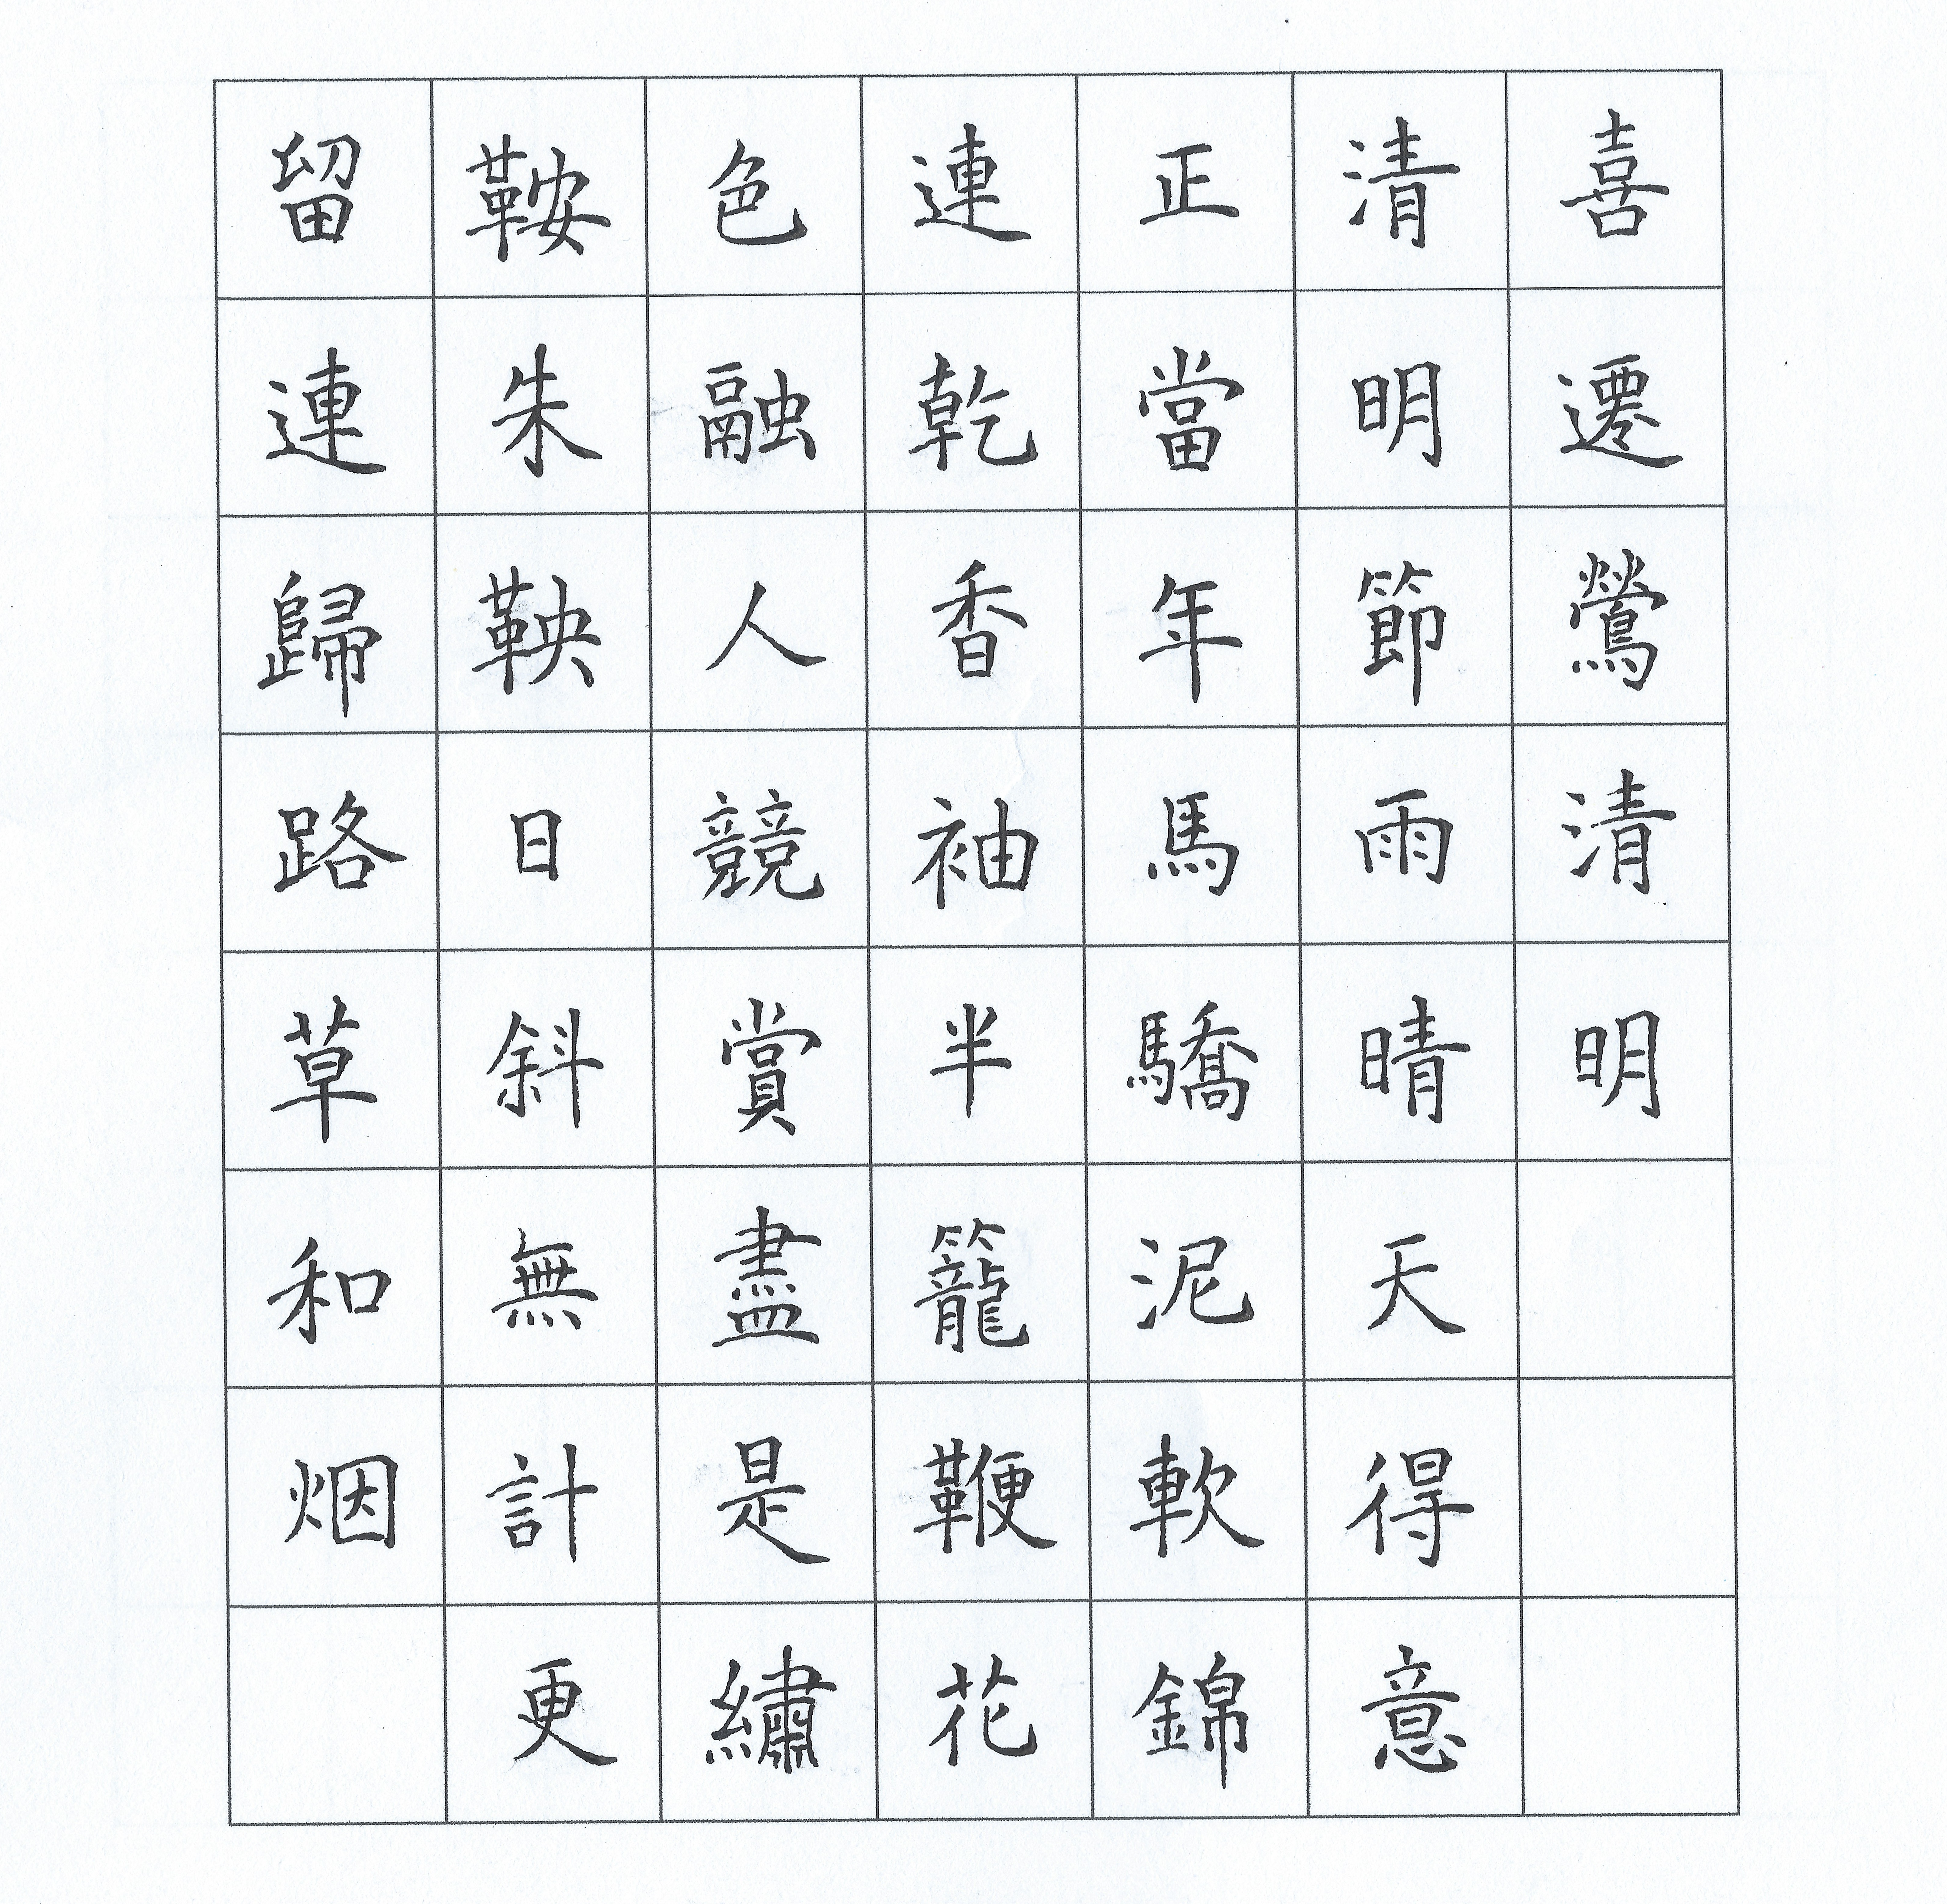 喜遷鶯清明
清明節雨晴天得意
正當年馬驕泥軟錦
連乾香袖半籠鞭花
色融人競賞盡是繡
鞍朱鞅日斜無計更
留連歸路草和烟